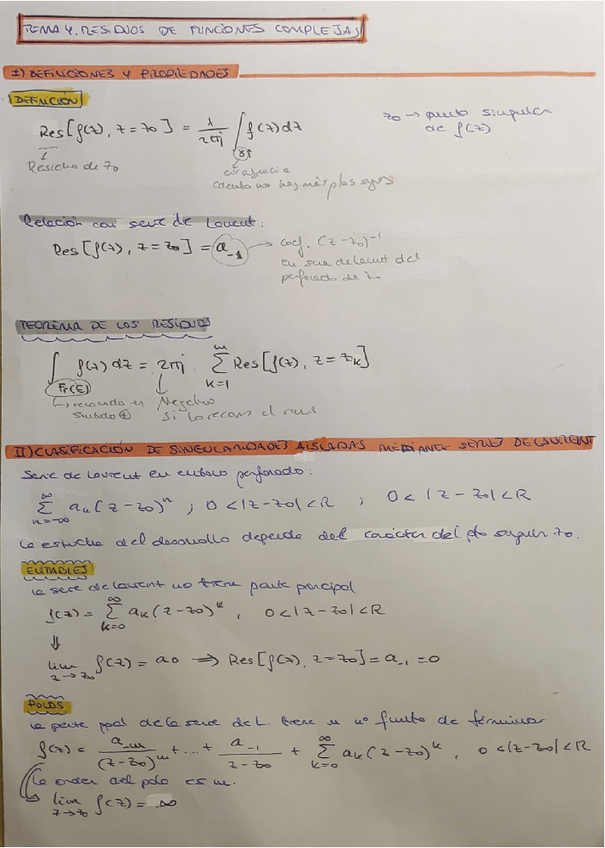 TEMA 4. RESIDUOS DE FUNCIONES COMPLEJAS
I) DEFINICIONES Y PROPIEDADES
DEFINICIÓN
Res[f(z), z=z₀] = 1/2πj ∫_γρ f(z)dz
z₀ → punto singular
de f(z)
Residuo de z₀
circunferencia
no hay más ptos sgres
Relación con serie de Laurent:
Res[f(z), z=z₀] = a₋₁ → coef. (z-z₀)⁻¹
en serie de Laurent del
perforado de z₀
TEOREMA DE LOS RESIDUOS
∫_Fr(E) f(z) dz = 2πj · ∑_{k=1}^{m} Res[f(z), z=z_k]
↳ recorrido en
sentido ⊕
Negativo
si lo recorro
II) CLASIFICACIÓN DE SINGULARIDADES AISLADAS MEDIANTE SERIES DE LAURENT
Serie de Laurent en entorno perforado:
∑_{n=-∞}^{∞} aₙ(z-z₀)ⁿ ; 0<|z-z₀|<R ; 0<|z-z₀|<R
del desarrollo depende del carácter del pto singular z₀.
EVITABLES
la serie de Laurent no tiene parte principal
f(z) = ∑_{k=0}^{∞} a_k(z-z₀)^k, 0<|z-z₀|<R
⇓
lim_{z→z₀} f(z) = a₀ ⟹ Res[f(z), z=z₀] = a₋₁ = 0
POLOS
la parte ppal de la serie de L. tiene un nº finito de términos
f(z) = a₋ₘ/(z-z₀)ᵐ + ... + a₋₁/z-z₀ + ∑_{k=0}^{∞} a_k(z-z₀)^k, 0<|z-z₀|<R
la orden del polo es m.
↳ lim_{z→z₀} f(z) = ∞